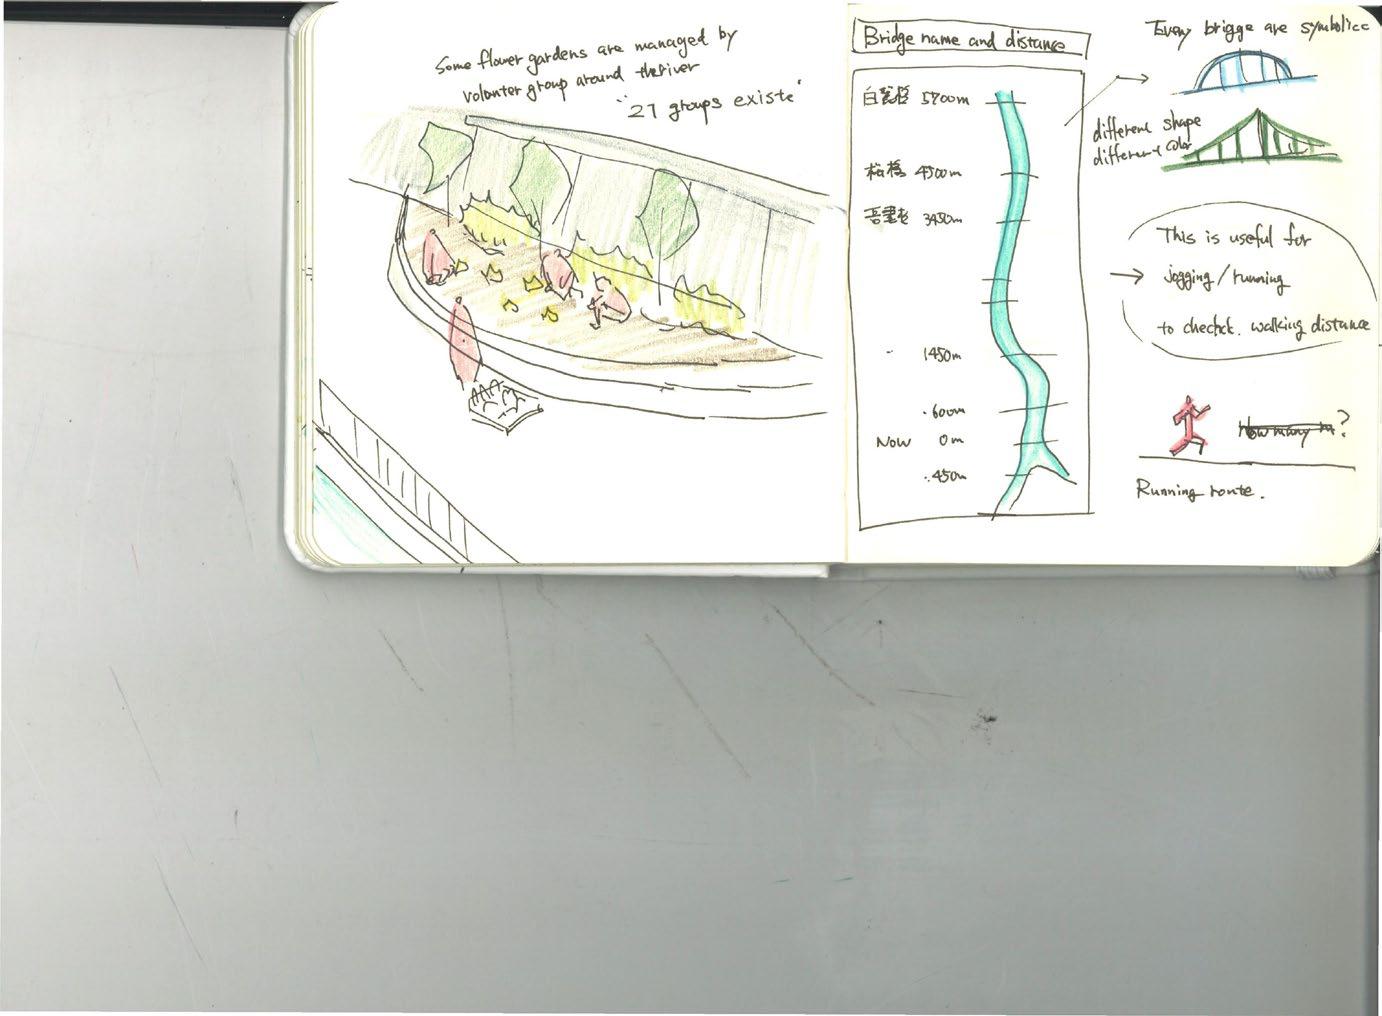 Some flower gardens are managed by
volunter group around the river
"27 groups existe"
Bridge name and distance
5700m
桜橋 4500m
3450m
1450m
.600m
Now 0m
.450m
Every brigge are symbolicc
different shape
different color
This is useful for
→ jogging/running
to chechck. walking distance
How many ?
Running route.